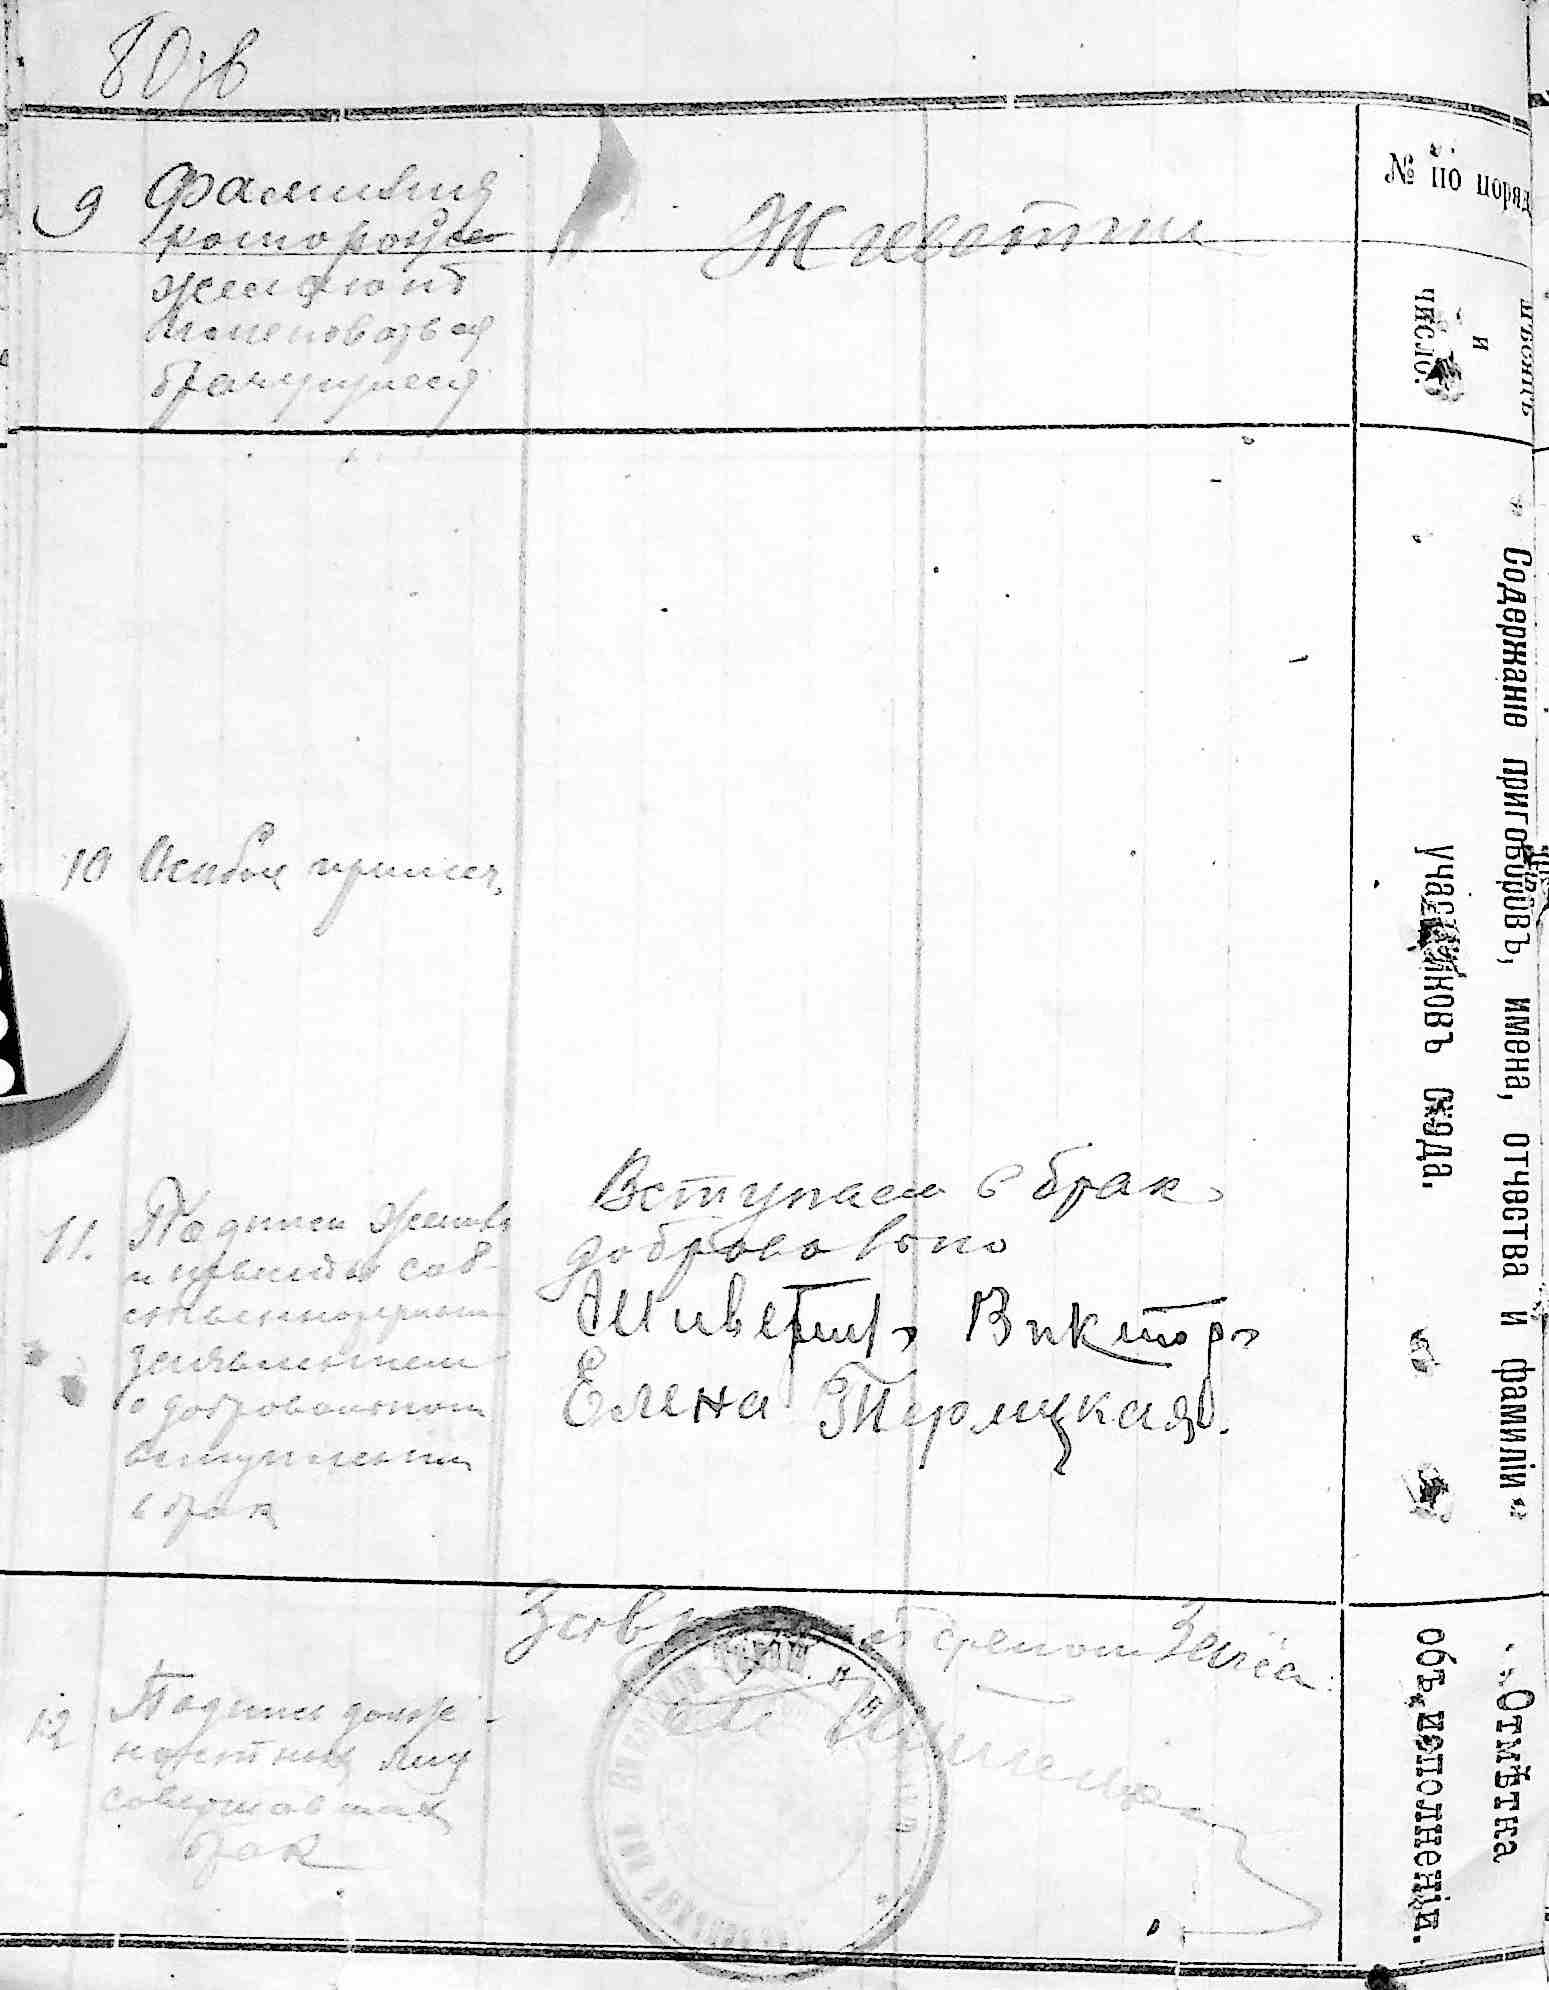 80зв
9 Фамилия
которой
желают
именоваться
брачущиеся
Живетин
10 Особые примеч.
11. Подписи жениха
и невесты соб-
ственноручные
заявлением
о добровольном
вступлении
в брак
Вступаем в брак
добровольно
Живетин Виктор
Елена Терлицкая.
12 Подписи долж-
ностных лиц
совершавших
брак
Зав Загса
№ по поряд
мѣсяцъ
и
число.
„Содержаніе приговоровъ, имена, отчества и фамиліи“
участниковъ схода.
„Отмѣтка
объ исполненіи.